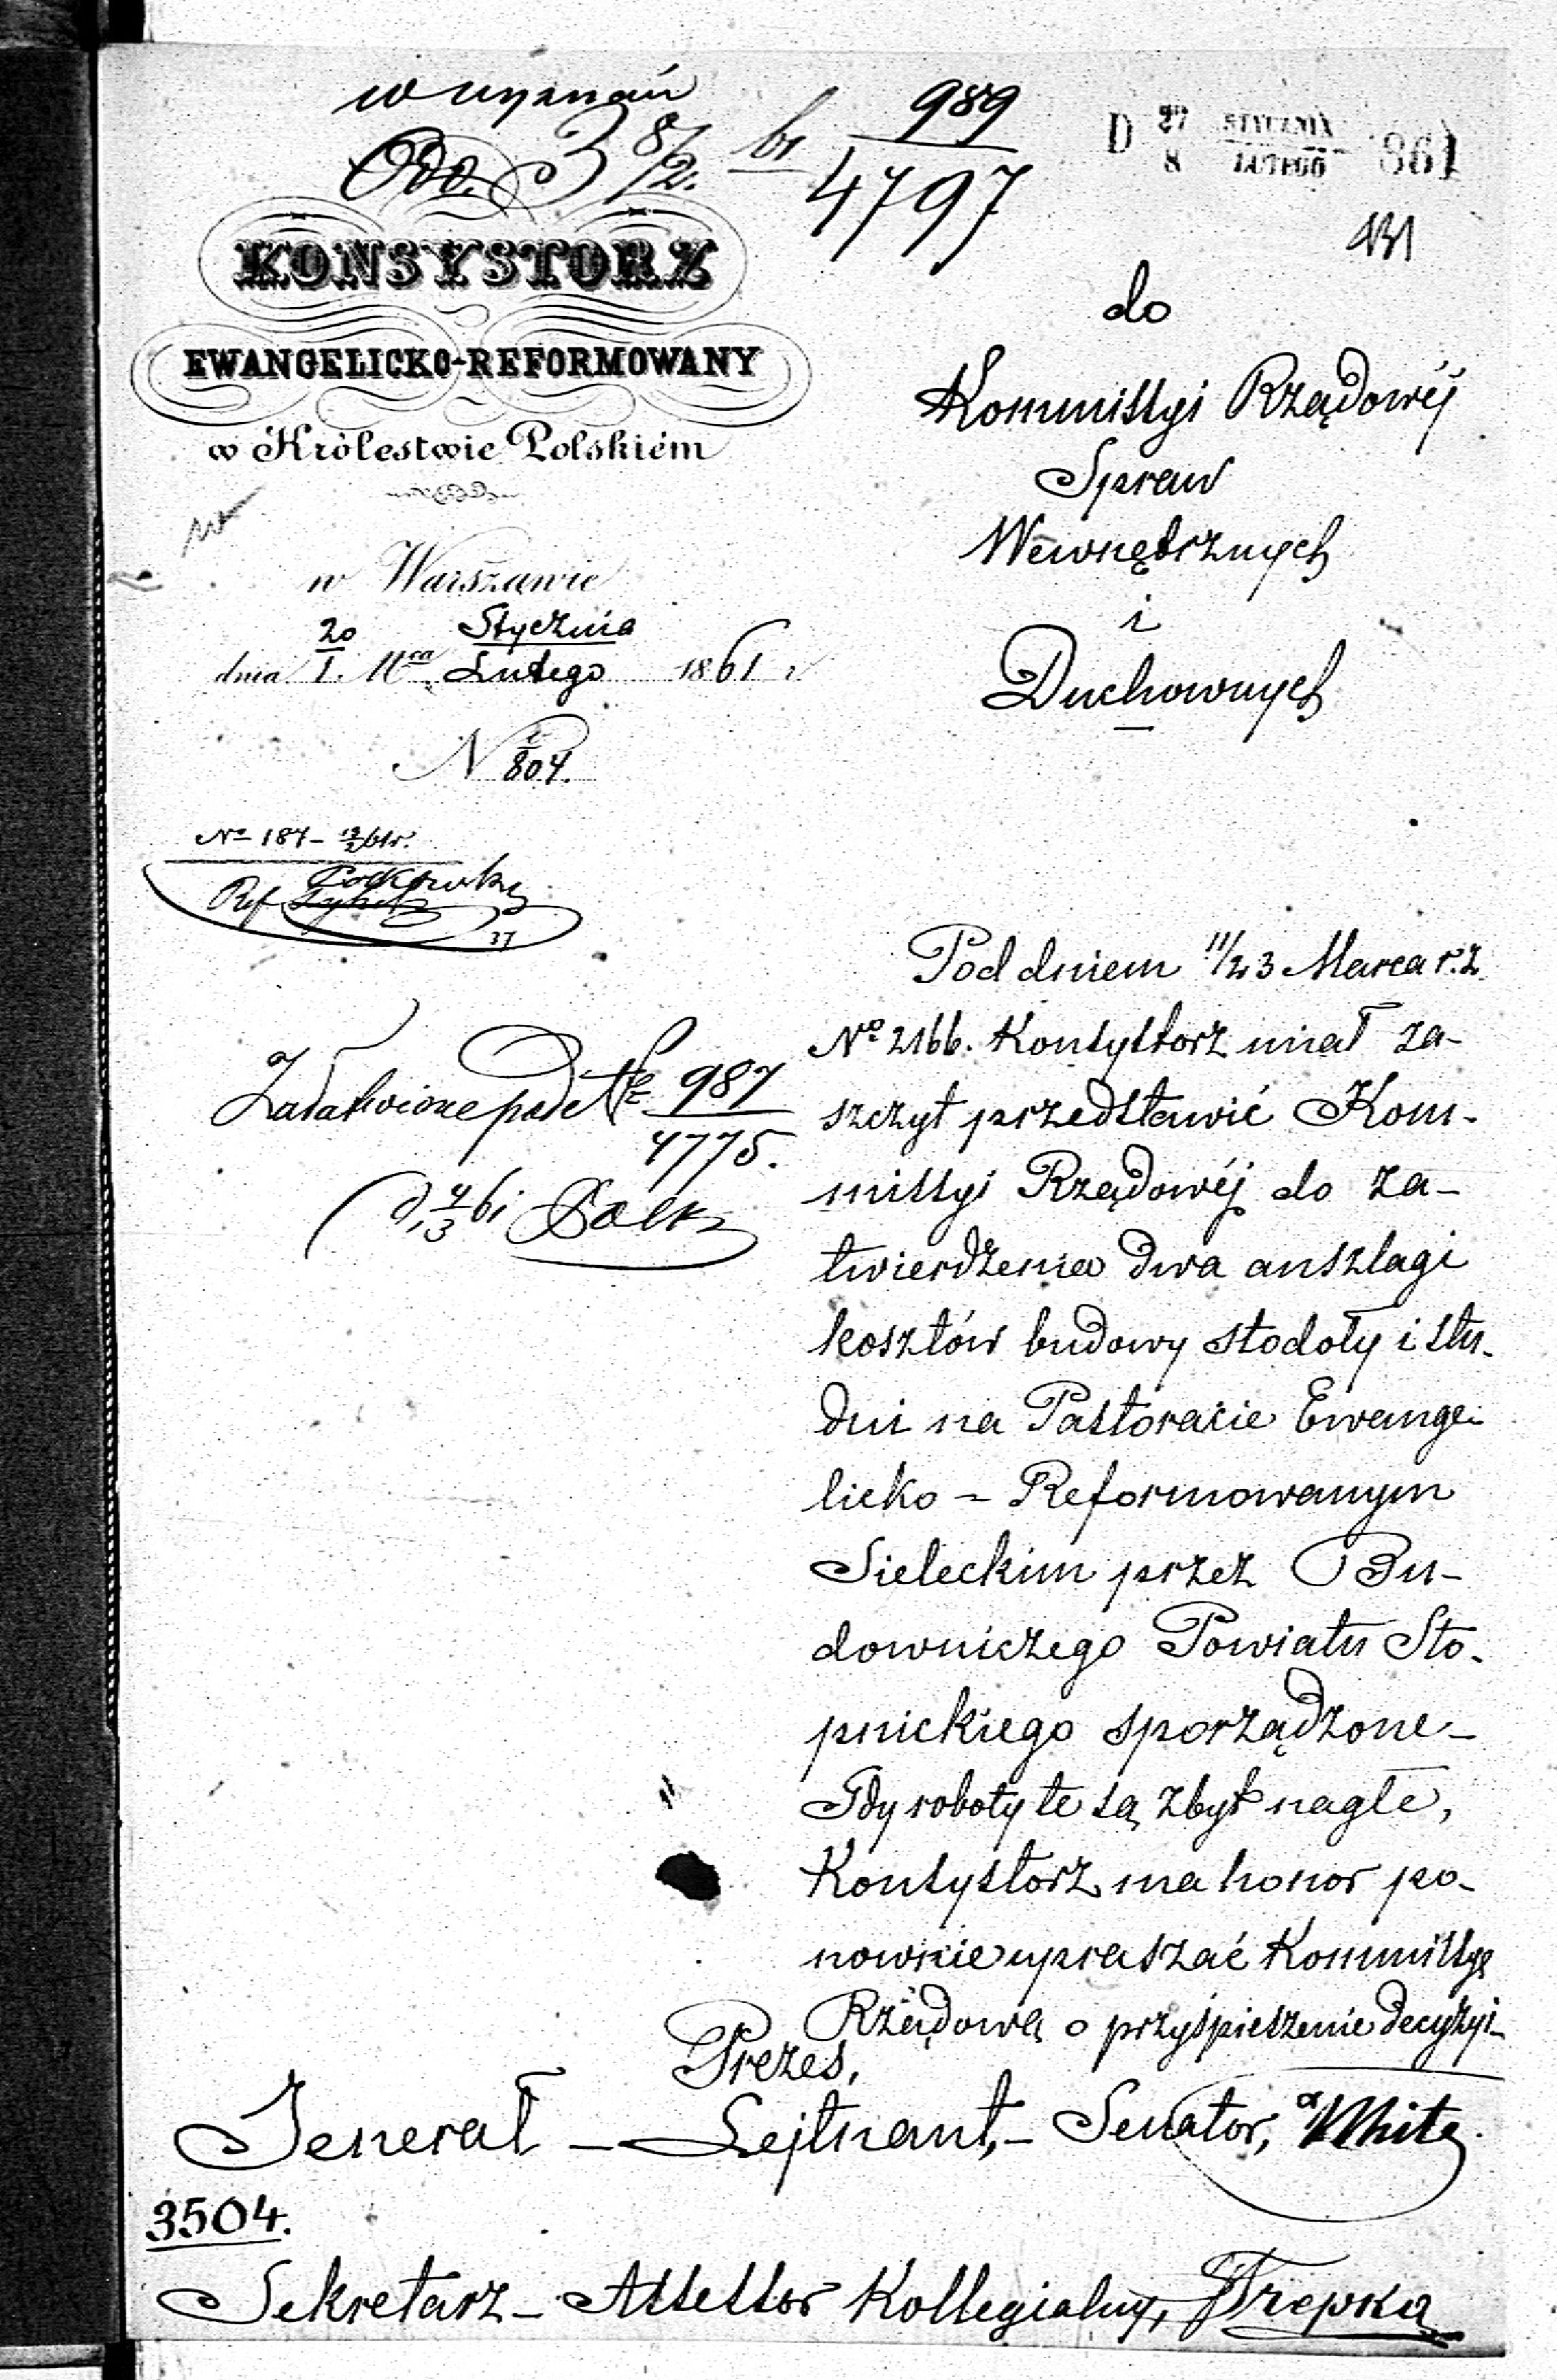 w wyznań
8/2. 61
989
4797
D 27 STYCZNIA
8 LUTEGO 1861
431
KONSYSTORZ
EWANGELICKO-REFORMOWANY
w Królestwie Polskiém
w Warszawie
dnia 20/1. Mca Stycznia/Lutego 1861 r
N 1/804.
do
Kommissyi Rządowéj
Spraw
Wewnętrznych
i
Duchownych
No 187 -
Ref
37
Załatwione pod No 987
4775.
Pod dniem 11/23 Marca r. z.
No 2166. Konsystorz miał za-
szczyt przedstawić Kom-
missyi Rządowéj do za-
twierdzenia dwa anszlagi
kosztów budowy stodoły i stu-
dni na Pastoracie Ewange-
licko - Reformowanym
Sieleckim przez Bu-
downiczego Powiatu Sto-
pnickiego sporządzone -
Gdy roboty te są zbyt nagłe,
Konsystorz ma honor po-
nownie upraszać Kommissyę
Rządową o przyśpieszenie decyzyi -
Prezes,
Jenerał - Lejtnant, - Senator, White
3504.
Sekretarz - Assessor Kollegialny, Trepka